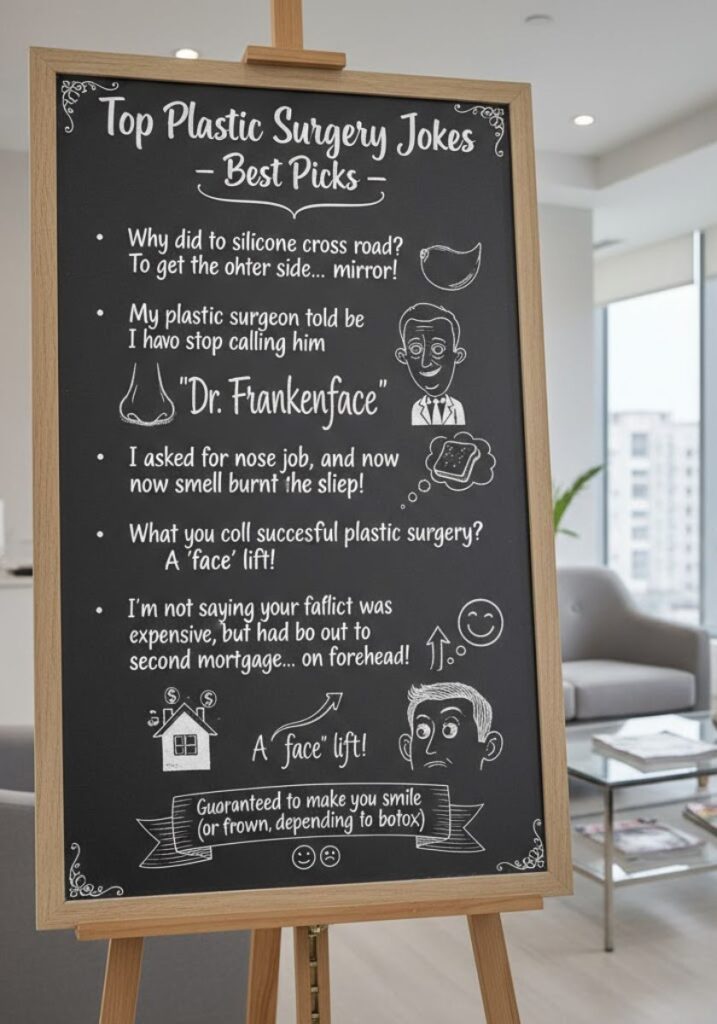 Top Plastic Surgery Jokes
– Best Picks –
• Why did to silicone cross road?
To get the ohter side... mirror!
• My plastic surgeon told be
I havo stop calling him
"Dr. Frankenface"
• I asked for nose job, and now
now smell burnt the sliep!
• What you coll succesful plastic surgery?
A 'face' lift!
• I'm not saying your faflict was
expensive, but had bo out to
second mortgage... on forehead!
$ $
A "face" lift!
Guaranteed to make you smile
(or frown, depending to botox)